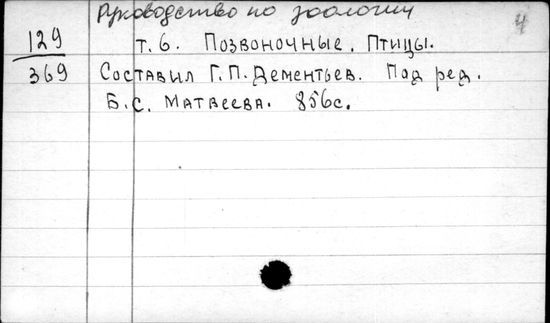 Руководство по зоологии
4
129
т. 6. Позвоночные. Птицы.
369
Составил Г.П. Дементьев. Под ред.
Б.С. Матвеева. 856с.